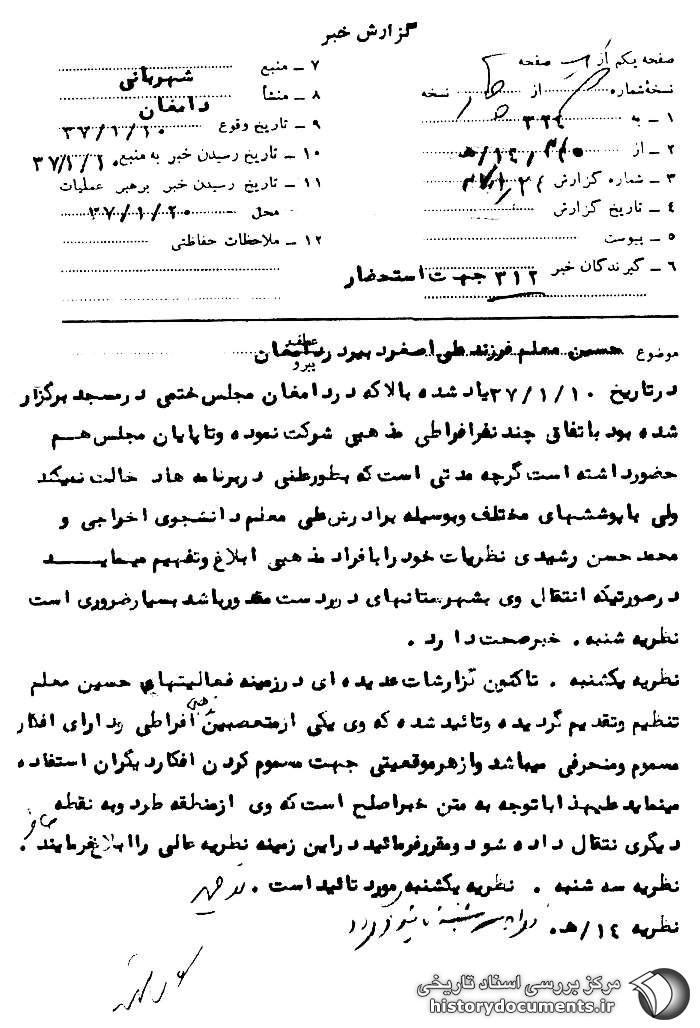 گزارش خبر
صفحه یکم از صفحه
نسخه شماره از نسخه
۱ ـ به ۳۲٤
۲ ـ از
۳ ـ شماره گزارش
٤ ـ تاریخ گزارش
۵ ـ پیوست
٦ ـ گیرندگان خبر ۳۱۲ جهت استحضار
۷ ـ منبع شهربانی
۸ ـ منشأ دامغان
۹ ـ تاریخ وقوع ۳۷/۱/۱۰
۱۰ ـ تاریخ رسیدن خبر به منبع ۳۷/۱/۱۰
۱۱ ـ تاریخ رسیدن خبر برهبر عملیات
محل ۳۷/۱/۲۰
۱۲ ـ ملاحظات حفاظتی
موضوع حسین معلم فرزند علی اصغر دبیر در دامغان
عطف
پیرو
در تاریخ ۳۷/۱/۱۰ یاد شده بالا که در دامغان مجلس ختمی در مسجد برگزار
شده بود باتفاق چند نفر افراطی مذهبی شرکت نموده و تا پایان مجلس هم
حضور داشته است گرچه مدتی است که بطور علنی در برنامه ها دخالت نمیکند
ولی با پوششهای مختلف و بوسیله برادرش علی معلم دانشجوی اخراجی و
محمد حسن رشیدی نظریات خود را با فراد مذهبی ابلاغ و تفهیم مینماید
در صورتیکه انتقال وی بشهرستانهای دور دست مقدور باشد بسیار ضروری است
نظریه شنبه . خبر صحت دارد .
نظریه یکشنبه . تاکنون گزارشات عدیده ای در زمینه فعالیتهای حسین معلم
تنظیم و تقدیم گردیده و تائید شده که وی یکی از متعصبین مذهبی افراطی و دارای افکار
مسموم و منحرفی میباشد و از هر موقعیتی جهت مسموم کردن افکار دیگران استفاده
مینماید علیهذا با توجه به متن خبر اصلح است که وی از منطقه طرد و به نقطه
دیگری نتقال داده شود و مقرر فرمائید در این زمینه نظریه عالی را ابلاغ فرمایند .
نظریه سه شنبه . نظریه یکشنبه مورد تائید است .
نظریه ۱٤/ه‍ .
مرکز بررسی اسناد تاریخی
historydocuments.ir